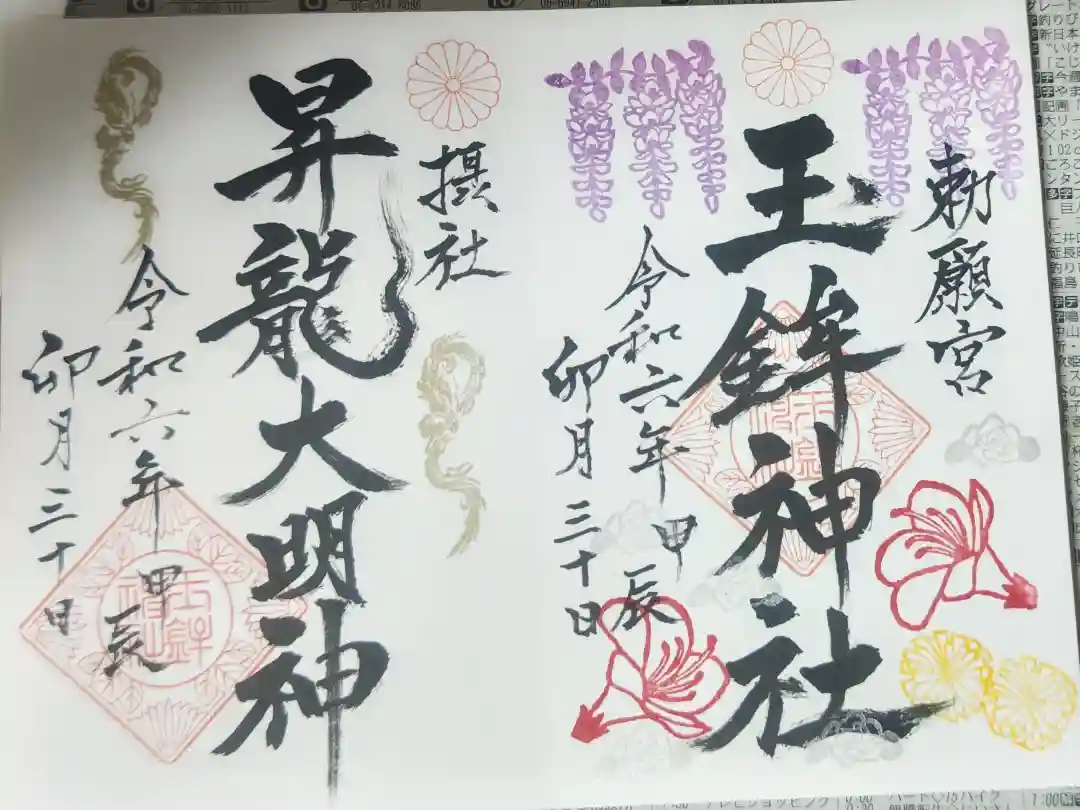 勅願宮
玉鉾神社
令和六年 甲辰
卯月三十日
摂社
昇龍大明神
令和六年 甲辰
卯月三十日